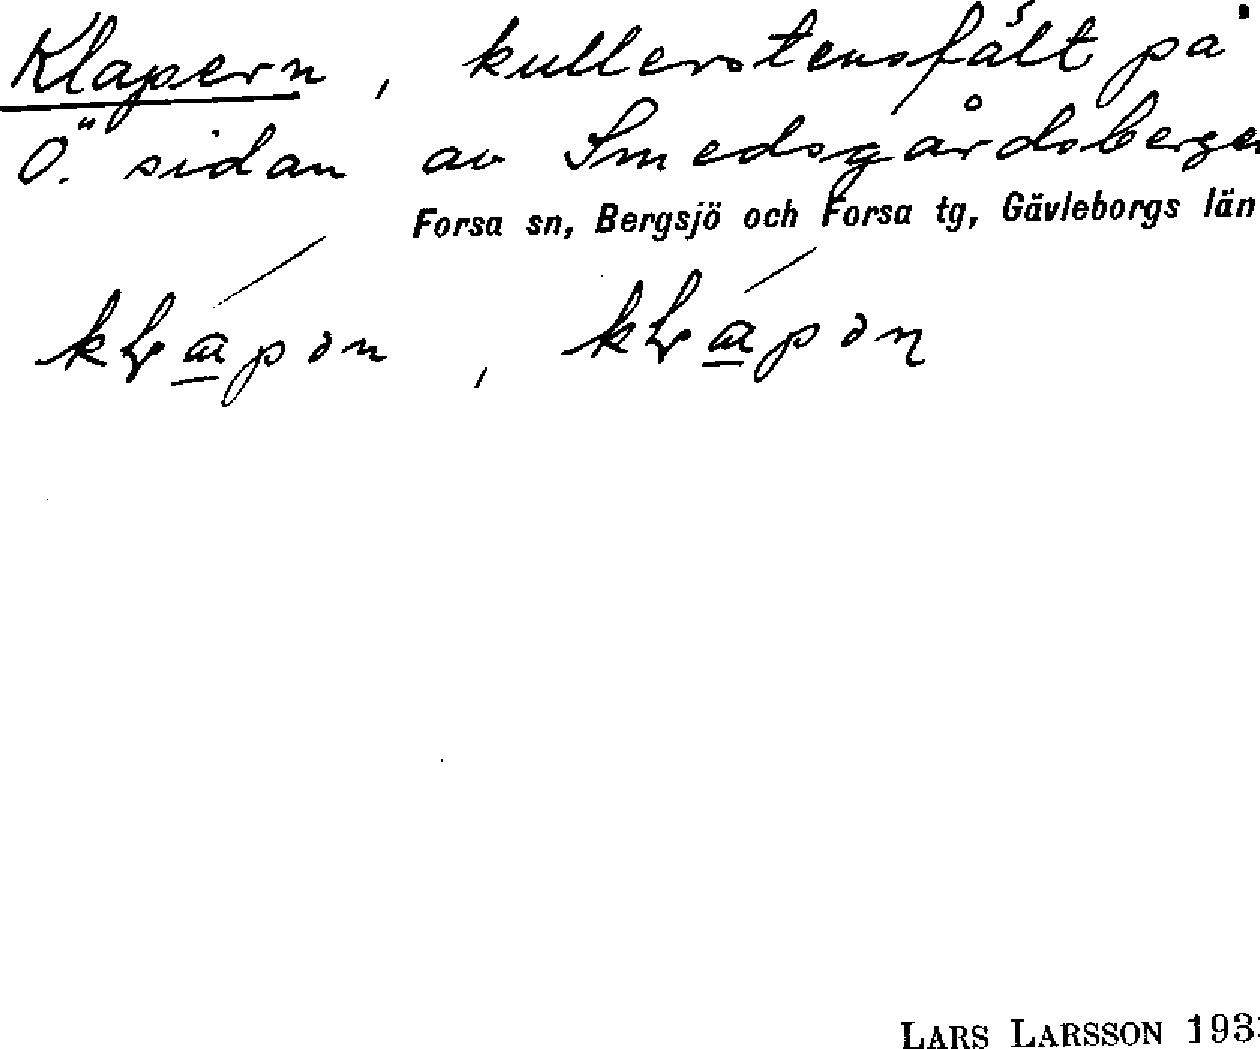 Klapern, kullerstensfält på
Ö. sidan av Smedsgårdsberge
Forsa sn, Bergsjö och Forsa tg, Gävleborgs län
LARS LARSSON 193